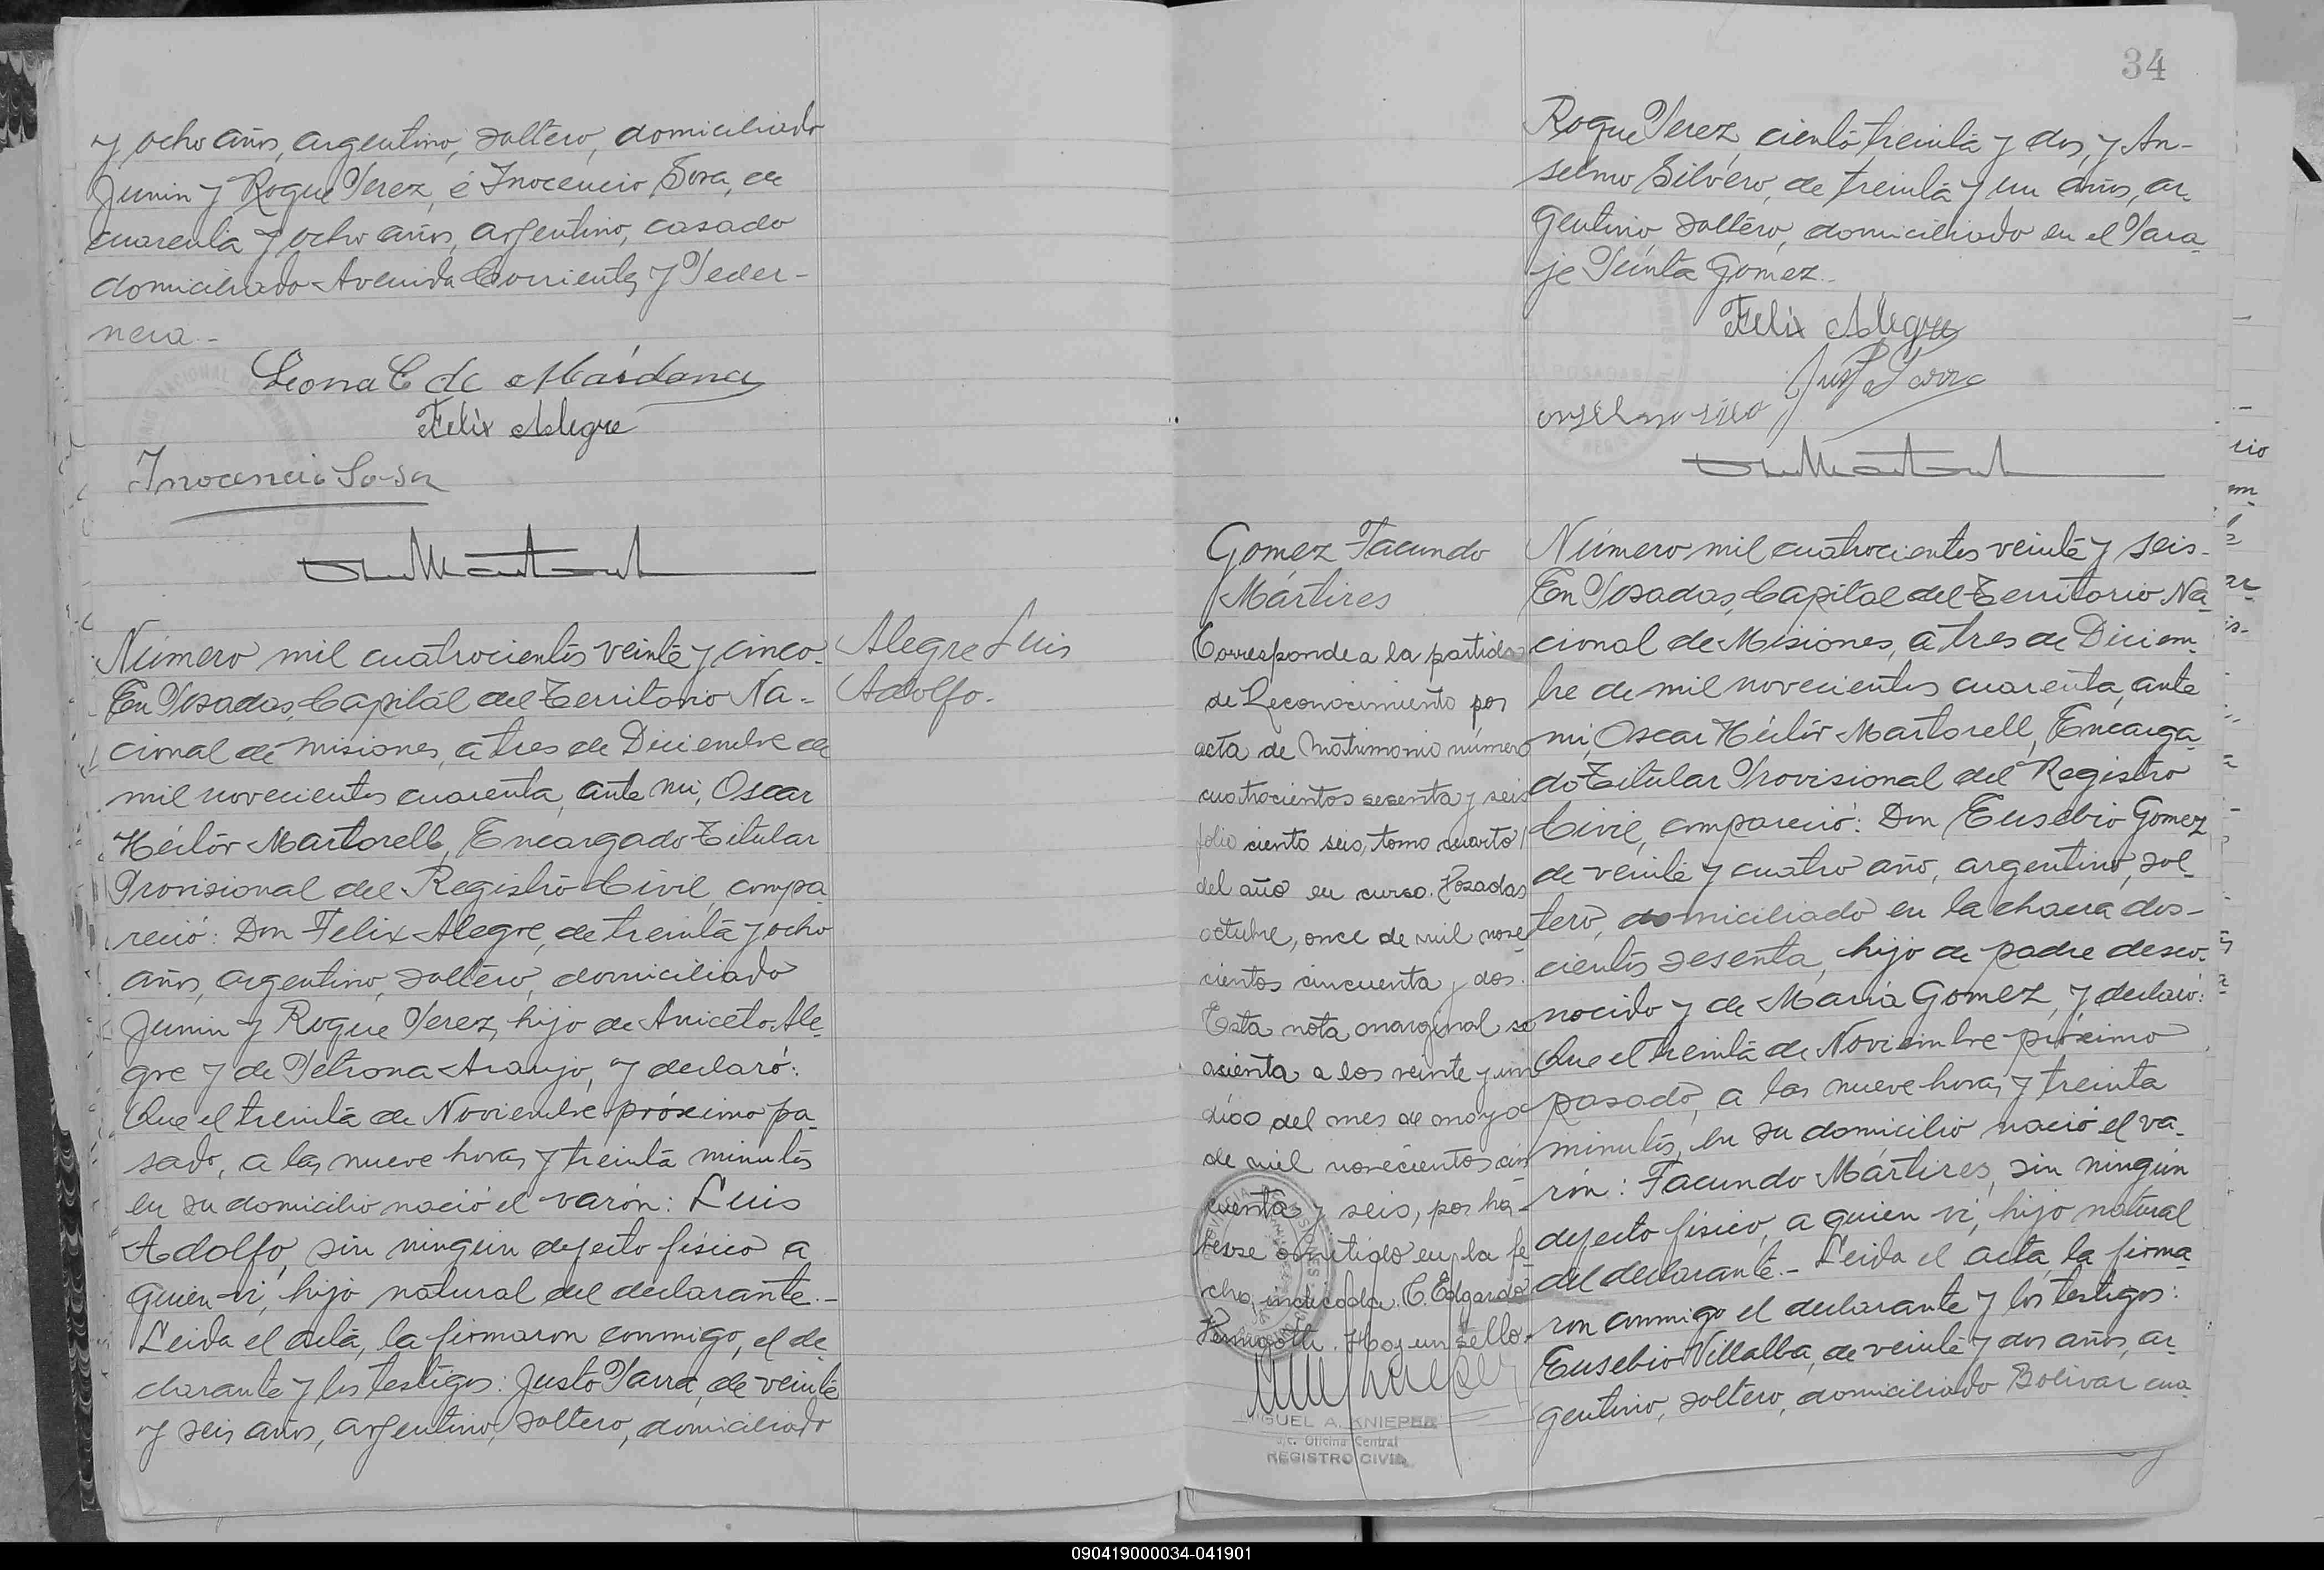 y ocho años, argentino, soltero, domiciliado
Junin y Roque Perez, é Inocencio Sosa, de
cuarenta y ocho años, argentino, casado
domiciliado Avenida Corrientes y Peder-
nera.-
Leona C de Márdana
Felix Alegre
Inocencio Sosa
Número mil cuatrocientos veinte y cinco.
En Posadas, Capital del Territorio Na-
cional de Misiones, a tres de Diciembre de
mil novecientos cuarenta, ante mi, Oscar
Héctor Martorell, Encargado Titular
Provisional del Registro Civil, compa-
reció: Don Felix Alegre, de treinta y ocho
años, argentino, soltero, domiciliado
Junin y Roque Perez, hijo de Aniceto Ale-
gre y de Petrona Araujo, y declaró:
Que el treinta de Noviembre próximo pa-
sado, a las nueve horas y treinta minutos
en su domicilio nació el varón: Luis
Adolfo, sin ningún defecto físico a
quien vi, hijo natural del declarante.-
Leida el acta, la firmaron conmigo, el de-
clarante y los testigos: Justo Parra, de veinte
y seis años, argentino, soltero, domiciliado
Alegre Luis
Adolfo.-
34
Roque Perez, ciento treinta y dos, y An-
selmo Silvero, de treinta y un años, ar-
gentino soltero, domiciliado en el Para-
je Peinta Gómez.-
Felix Alegre
Justo Parra
Gomez Facundo
Mártires
Corresponde a la partida
de Reconocimiento por
acta de Matrimonio número
cuatrocientos sesenta y seis
folio ciento seis, tomo cuarto
del año en curso. Posadas
octubre, once de mil nove
cientos cincuenta y dos.
Esta nota marginal se
asienta a los veinte y un
días del mes de mayo
de mil novecientos cin
cuenta y seis, por ha-
berse omitido en la fe
cha indicada. C. Edgardo
Hay un sello.
MIGUEL A. KNIEPER
Oficina Central
REGISTRO CIVIL
Número mil cuatrocientos veinte y seis-
En Posadas, Capital del Territorio Na-
cional de Misiones, a tres de Diciem-
bre de mil novecientos cuarenta, ante
mi, Oscar Héctor Martorell, Encarga-
do Titular Provisional del Registro
Civil, compareció: Don Eusebio Gomez
de veinte y cuatro año, argentino, sol-
tero, domiciliado en la chacra dos-
cientos sesenta, hijo de padre desco-
nocido y de María Gomez, y declaró:
Que el treinta de Noviembre próximo
pasado, a las nueve horas y treinta
minutos, en su domicilio nació el va-
rón: Facundo Mártires, sin ningún
defecto físico, a quien vi, hijo natural
del declarante.- Leida el acta, la firma
ron conmigo el declarante y los testigos:
Eusebio Villalba, de veinte y dos años, ar-
gentino, soltero, domiciliado Bolivar cua-
090419000034-041901